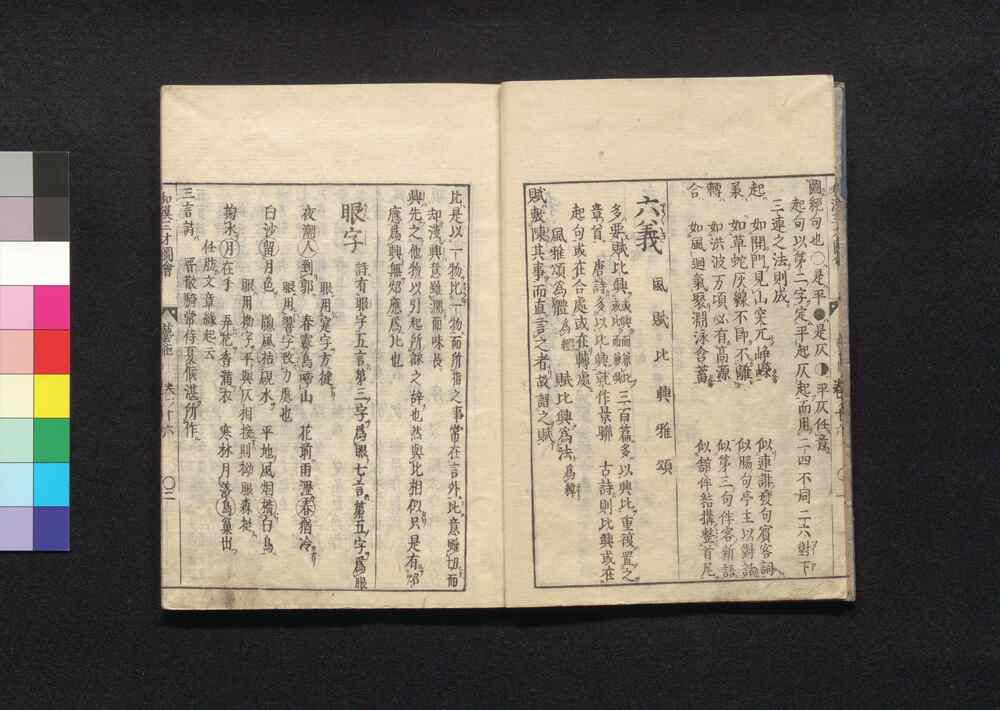 圖經句也○是平●是仄◐平仄任意
起句以第二字定平起仄起而用二四不同二六對下
三連之法則成
起 如開門見山突兀崢嶸 似連誹發句賓客詞
承 如草蛇灰線不即不離 似腸句亭主以對話
轉 如洪波万頃必有高源 似第三句伴客新語
合 如風廻氣聚淵泳含蓄 似諸伴結搆整首尾
六義 風 賦 比 興 雅 頌
多要賦比興 三百篇多以興比重複置之
章首 唐詩多以比興就作景聯 古詩則比興或在
起句或在合處或在轉處
風雅頌爲體爲經 賦比興爲法爲緯
賦敷陳其事而直言之者故謂之賦
比是以一物比一物而所指之事常在言外比意雖切而
却淺興意雖濶而味長
興先之他物以引起所詠之辞也然與比相似只是有
應爲興無 應爲比也
眼字 詩有眼字五言第三字爲眼七言第五字爲眼
眼用定字方健
夜潮人到郭 春霧鳥啼山 花前雨濕春猶冷
眼用響字政力應也
白沙留月色 隱風拈硯水 平地風烟橫白鳥
眼用拗字平與仄相換則拗眼森挺
掬水月在手 弄花香滿衣 寒林月落鳥巢出
任肪文章縁起云
三言詩 晋散騎常侍夏侯湛所作
和漢三才圖會 藝能 卷之十六 ○三